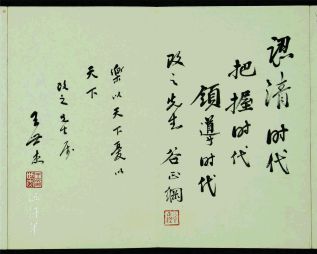 認清时代
把握时代
領導时代
政之先生 谷正綱
樂以天下憂以
天下
政之先生属
王世杰